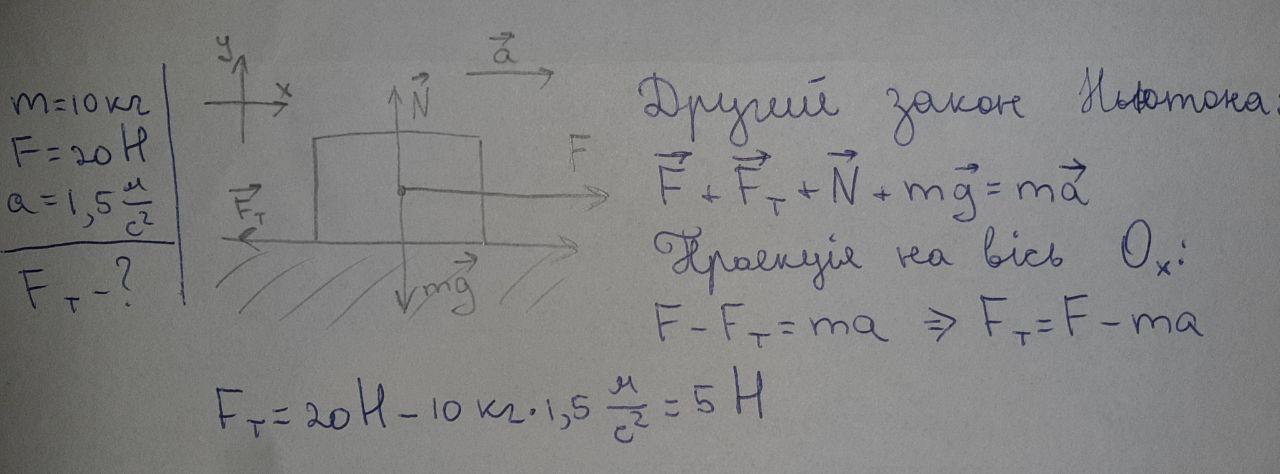 m=10кг
F=20Н
a=1,5 м/с²
Fт-?
y
x
a⃗
N⃗
F
F⃗т
mg⃗
Другий закон Ньютона:
F⃗ + F⃗т + N⃗ + mg⃗ = ma⃗
Проекція на вісь Ox:
F - Fт = ma ⇒ Fт = F - ma
Fт = 20Н - 10 кг·1,5 м/с² = 5 Н